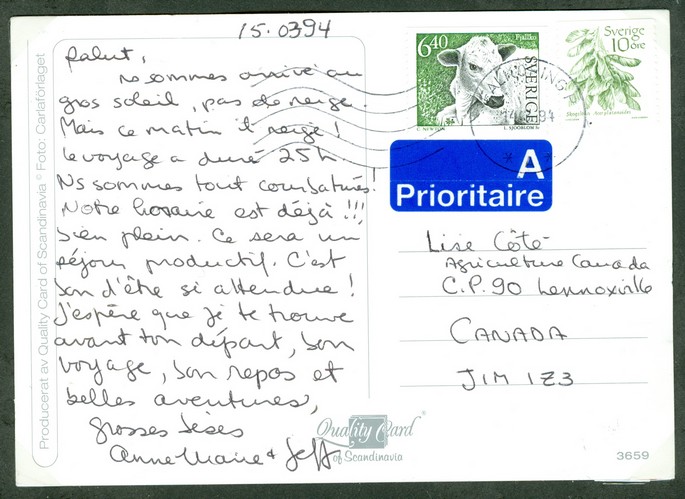 15.0394
Salut,
Ns sommes arrivé au
gros soleil, pas de neige.
Mais ce matin il neige!
Le voyage a duré 25h.
Ns sommes tout courbaturés!
Notre horaire est déjà!!!
bien plein. Ce sera un
séjour productif. C'est
bon d'être si attendue!
J'espère que je te trouve
avant ton départ, bon
voyage, bon repos et
belles aventures,
grosses bises
Anne Marie & Jeff
Producerat av Quality Card of Scandinavia © Foto: Carlaförlaget
640
Fjällko
SVERIGE
L. SJÖÖBLOM
Sverige
10 öre
A
Prioritaire
Lise Côté
Agriculture Canada
C.P. 90 Lennoxville
CANADA
J1M 1Z3
Quality Card®
of Scandinavia
3659